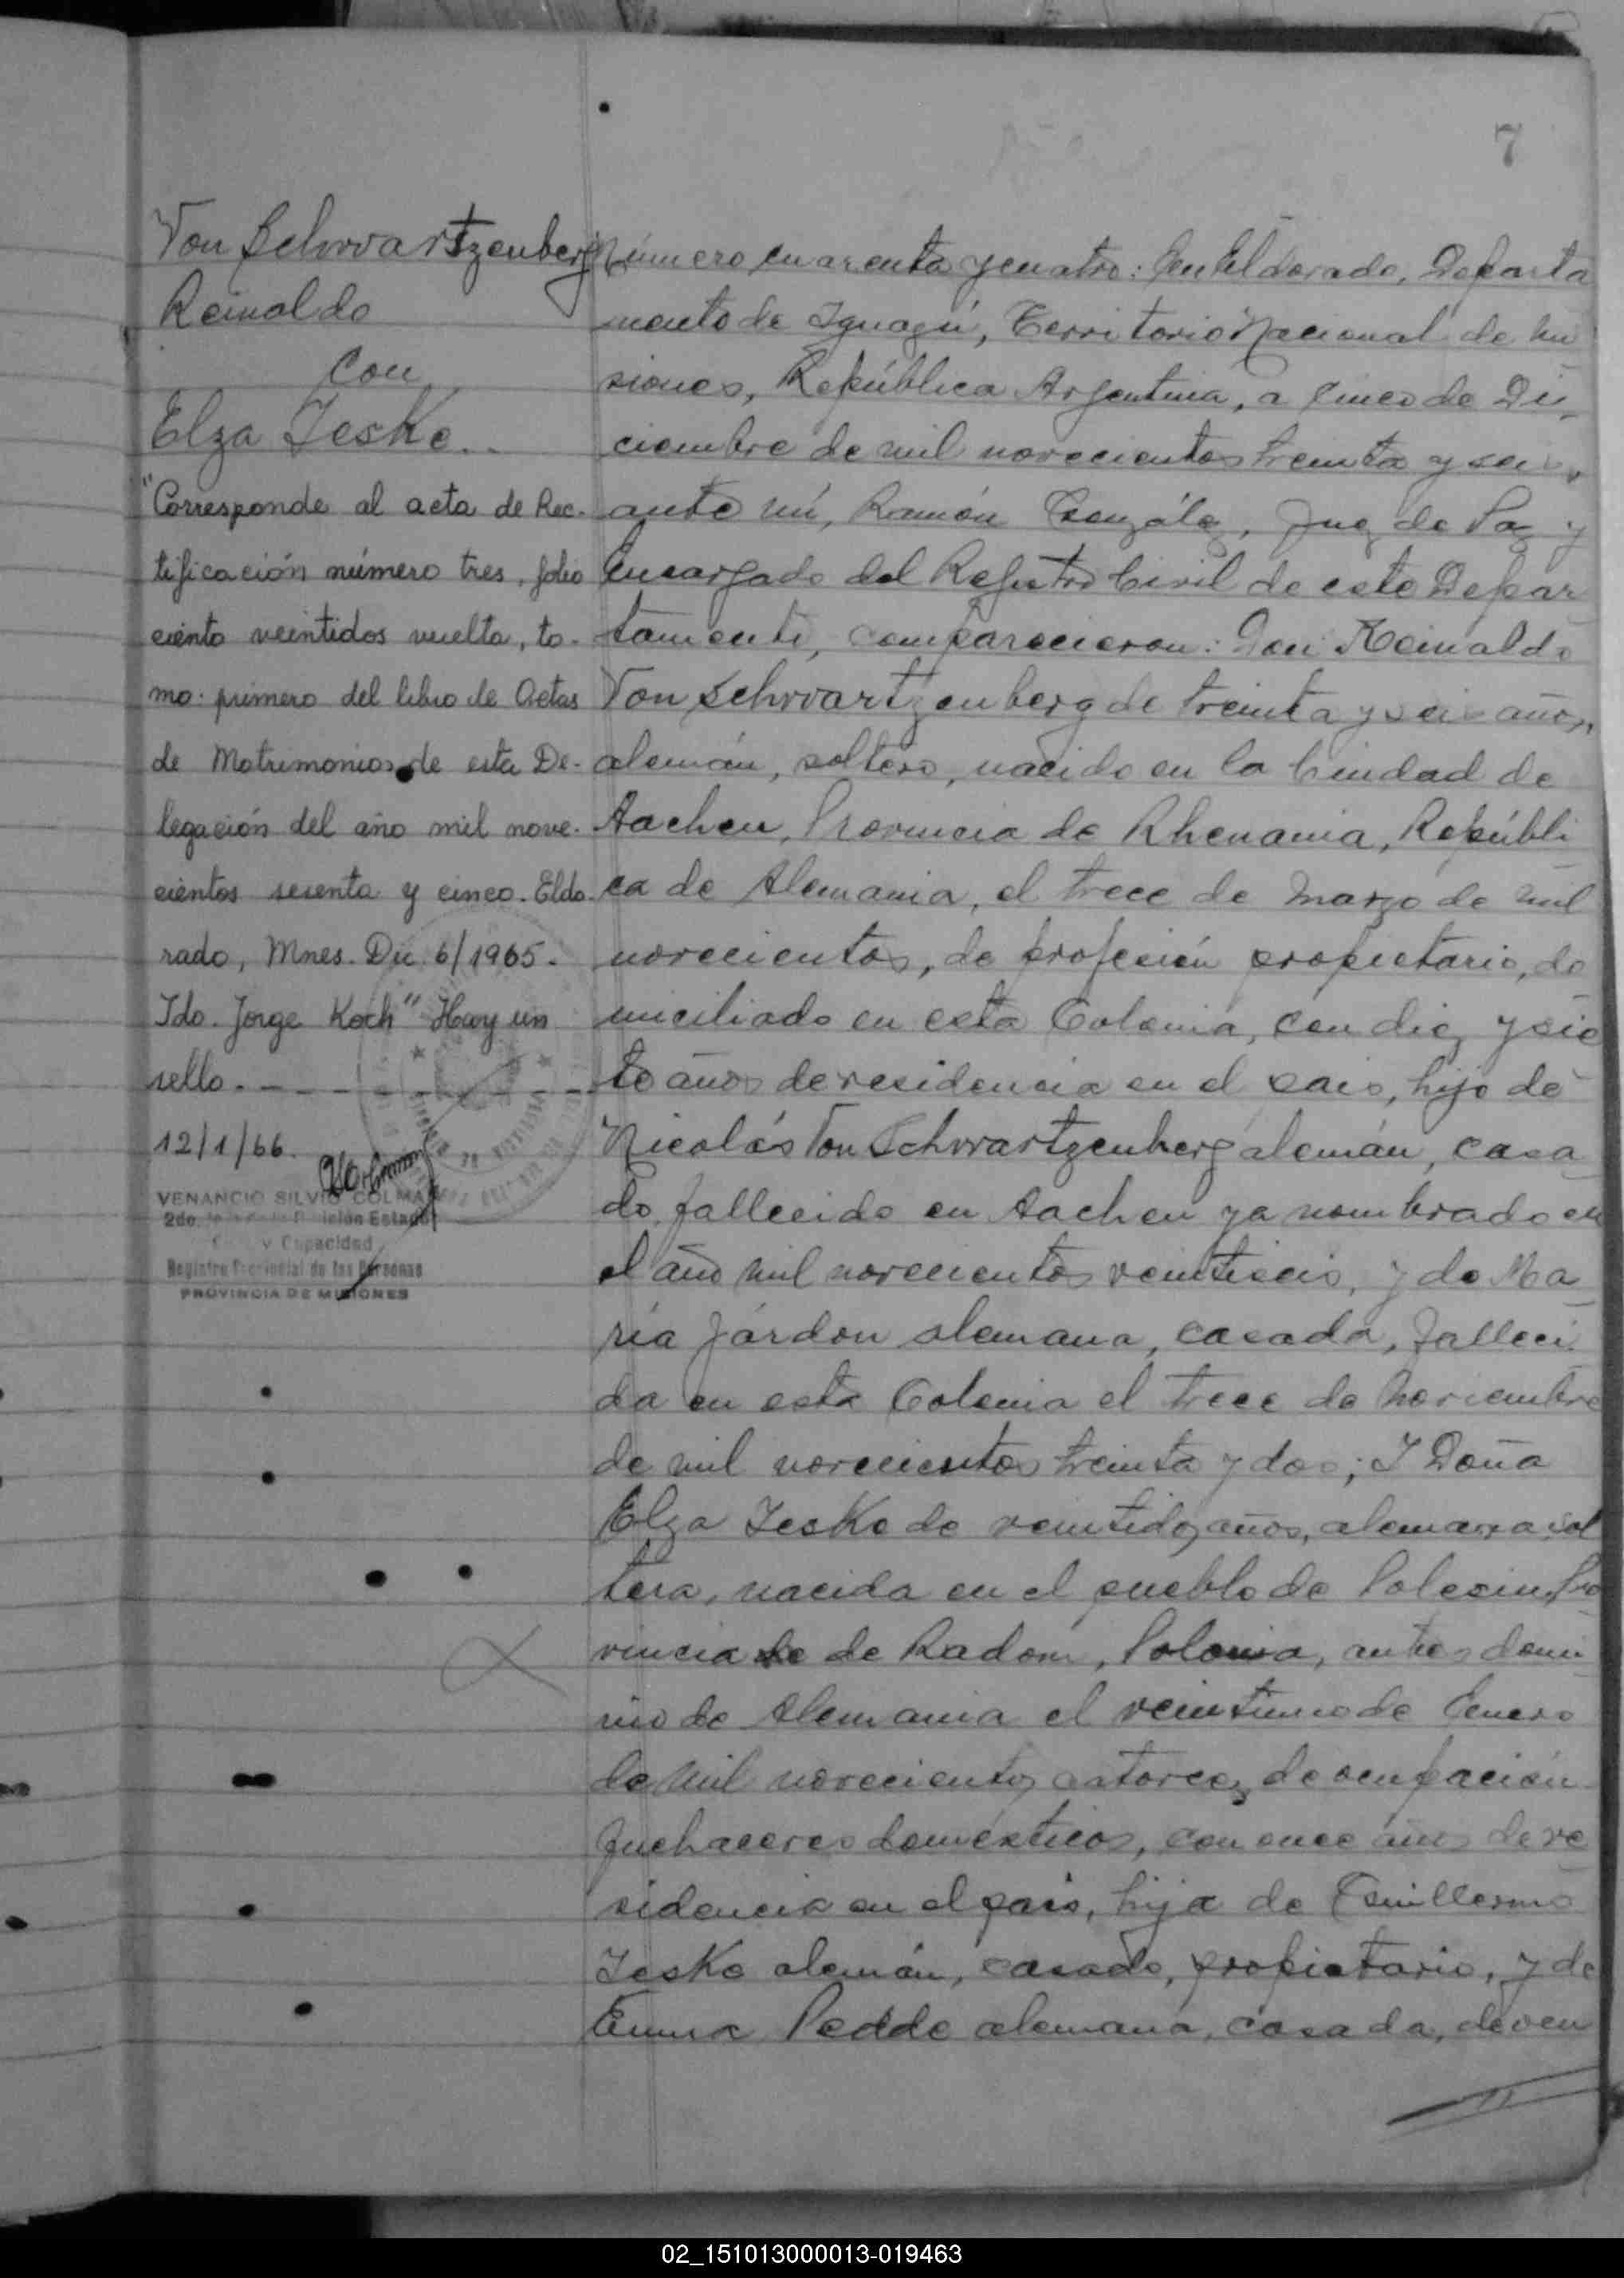 7
Von Schwartzenberg
Reinaldo
con
Elza Jeske..
"Corresponde al acta de Rec-
tificación número tres, folio
ciento veintidos vuelta, to-
mo: primero del libro de Actas
de Matrimonios de esta De-
legación del año mil nove-
cientos sesenta y cinco. Eldo-
rado, Mnes. Dic 6/1965.
Fdo. Jorge Koch" Hay un
sello.
12/1/66.
VENANCIO SILVIO COLMAN
2do. División Estado
y Capacidad
Registro Provincial de las Personas
PROVINCIA DE MISIONES
Número cuarenta y cuatro: En Eldorado, Departa
mento de Iguazú, Territorio Nacional de Mi
siones, República Argentina, a cinco de Di-
ciembre de mil novecientos treinta y seis,
ante mí, Ramón González, Juez de Paz y
Encargado del Registro Civil de este Depar
tamento, comparecieron: Don Reinaldo
Von Schwartzenberg de treinta y seis años,
alemán, soltero, nacido en la Ciudad de
Aachen, Provincia de Rhenania, Repúbli
ca de Alemania, el trece de Marzo de mil
novecientos, de profesión propietario, do
miciliado en esta Colonia, con diez y sie
te años de residencia en el pais, hijo de
Nicolás Von Schwartzenberg alemán, casa
do, fallecido en Aachen ya nombrado en
el año mil novecientos veintiseis, y de Ma
ría Járdon alemana, casada, falleci
da en esta Colonia el trece de Noviembre
de mil novecientos treinta y dos; Y Doña
Elza Jeske de veintidos años, alemana, sol
tera, nacida en el pueblo de Polesin, Pro
vincia de de Radom, Polonia, antes domi
nio de Alemania el veintiuno de Enero
de mil novecientos catorce, de ocupación
quehaceres domésticos, con once años de re
sidencia en el pais, hija de Guillermo
Jeske alemán, casado, propietario, y de
Emma Pedde alemana, casada, de ocu
02_151013000013-019463